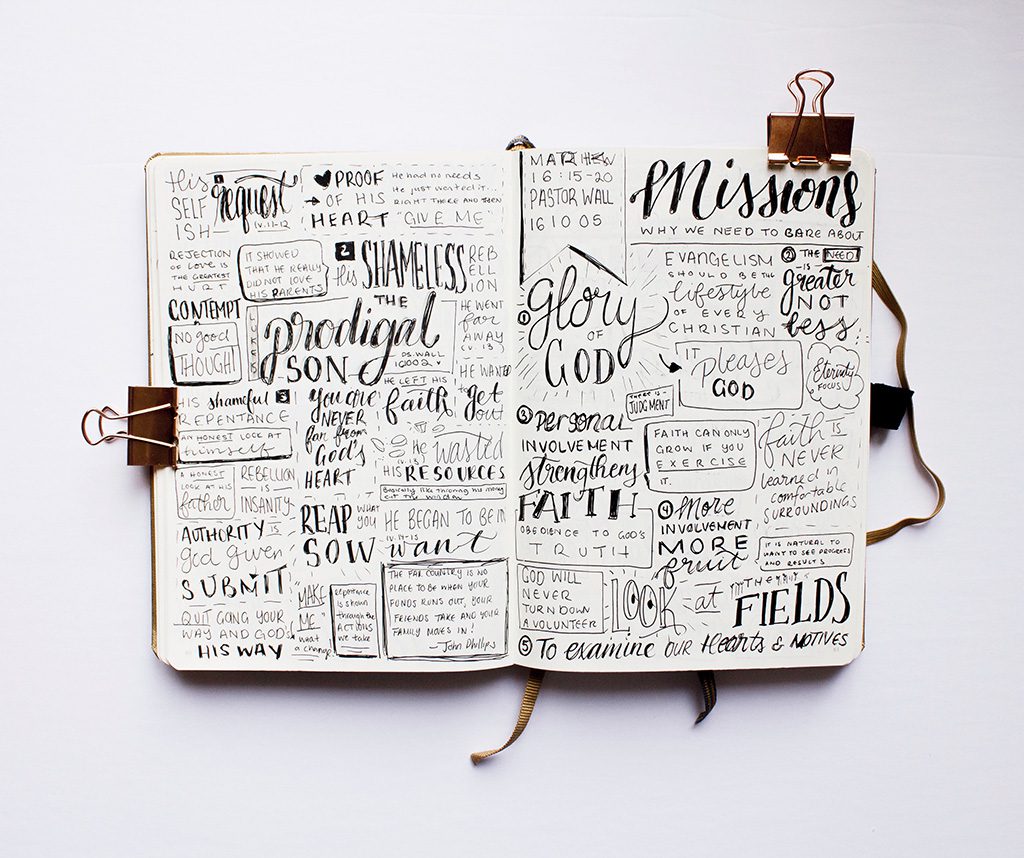 His
SELF
ISH
1
request
(v.11-12)
PROOF
OF HIS
HEART
He had no needs
He just wanted it
RIGHT THERE AND THEN
"GIVE ME"
REJECTION
OF LOVE IS
THE GREATEST
HURT
IT SHOWED
THAT HE REALLY
DID NOT LOVE
HIS PARENTS
2
His
SHAMELESS
REB
ELL
ION
CONTEMPT
NO good
THOUGHT
LUKE 15
THE
prodigal
SON
PS. WALL
161002
HE WENT
far
AWAY
(v. 13)
HE WANTED
HE LEFT HIS
faith
get
out
HIS shameful 3
REPENTANCE
AN HONEST LOOK AT
himself
You are
NEVER
far from
God's
HEART
A HONEST
LOOK AT HIS
father
REBELLION
IS
INSANITY
HE wasted
HIS RESOURCES
Basically like throwing his money
out the window
AUTHORITY IS
god given
SUBMIT
QUIT GOING YOUR
WAY AND GODS
HIS WAY
REAP WHAT
YOU
SOW
HE BEGAN TO BE IN
(v. 14-15
want
"MAKE
ME"
what
a change
Repentance
is shown
through the
ACTIONS
we take
THE FAR COUNTRY IS NO
PLACE TO BE WHEN YOUR
FUNDS RUNS OUT, YOUR
FRIENDS TAKE AND YOUR
FAMILY MOVES IN!
-John Phillips
MATTHEW
16:15-20
PASTOR WALL
161005
Missions
WHY WE NEED TO BARE ABOUT
1
Glory
OF
GOD
EVANGELISM
SHOULD BE THE
lifestyle
OF EVERY
CHRISTIAN
2 THE NEED
IS
greater
NOT
less
IT
pleases
GOD
Eternity
FOCUS
THERE IS
JUDGMENT
3 Personal
INVOLVEMENT
strengthens
FAITH
OBEDIENCE TO GOD'S
TRUTH
FAITH CAN ONLY
GROW IF YOU
EXERCISE
IT.
faith IS
NEVER
learned in
comfortable
SURROUNDINGS
4 More
INVOLVEMENT
MORE
fruit
IT IS NATURAL TO
WANT TO SEE PROGRESS
AND RESULTS
GOD WILL
NEVER
TURN DOWN
A VOLUNTEER
LOOK at THE
FIELDS
5 To examine OUR Hearts & MOTIVES